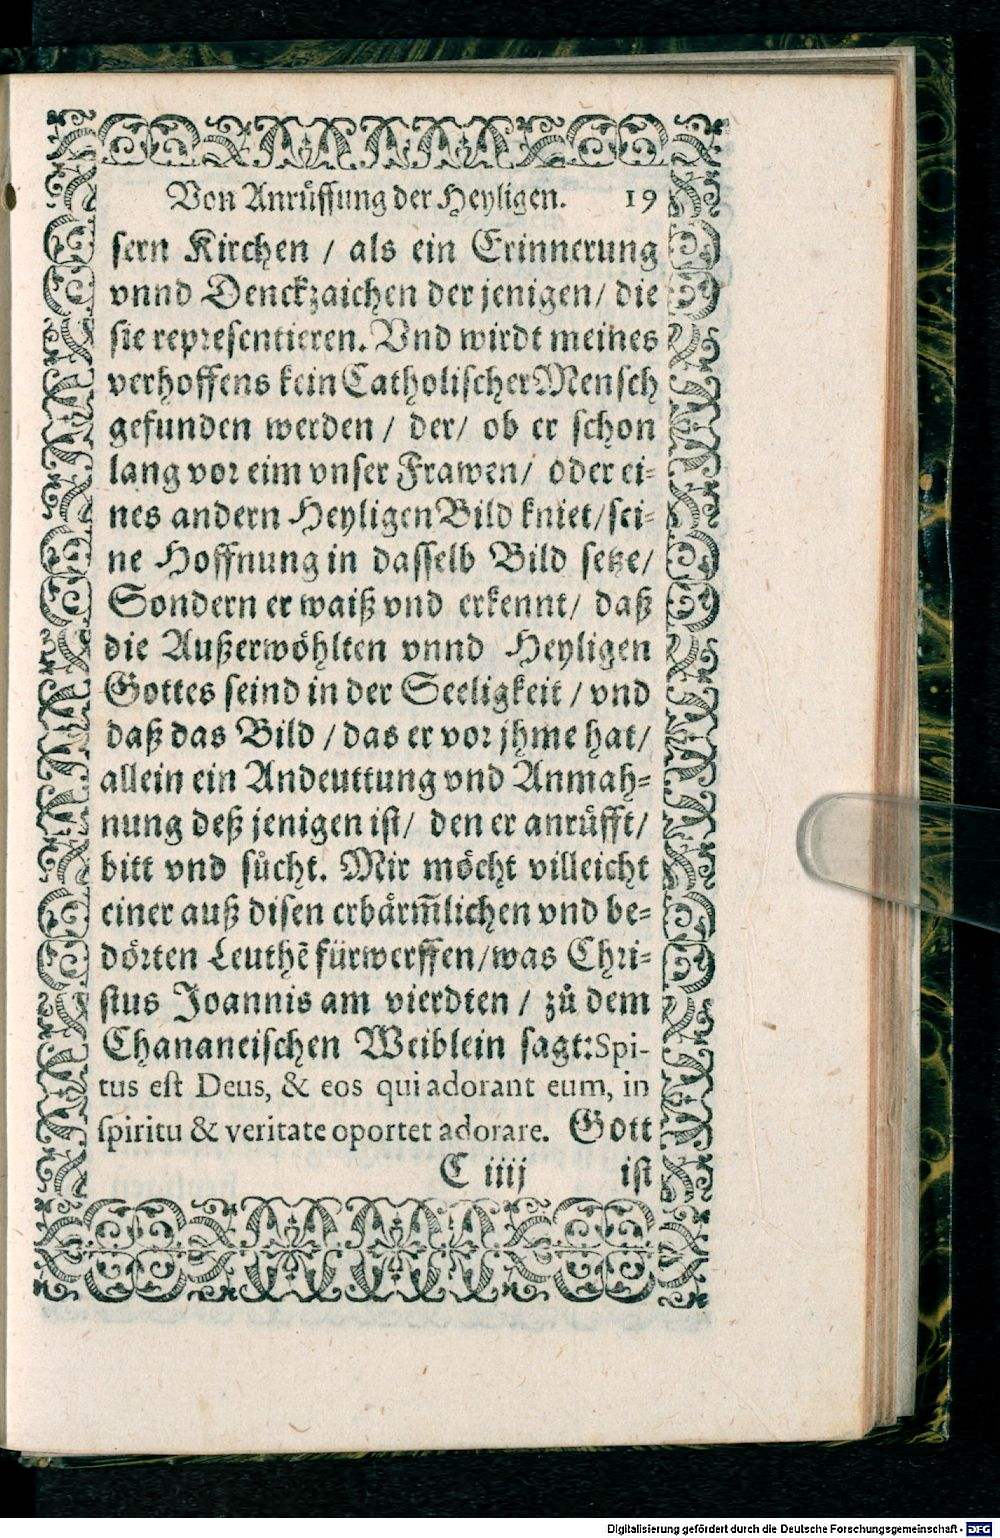 Von Anrůffung der Heyligen. 19
sern Kirchen / als ein Erinnerung
vnnd Denckzaichen der jenigen / die
sie representieren. Vnd wirdt meines
verhoffens kein Catholischer Mensch
gefunden werden / der / ob er schon
lang vor eim vnser Frawen / oder ei-
nes andern Heyligen Bild kniet / sei-
ne Hoffnung in dasselb Bild setze /
Sondern er waiß vnd erkennt / daß
die Außerwöhlten vnnd Heyligen
Gottes seind in der Seeligkeit / vnd
daß das Bild / das er vor jhme hat /
allein ein Andeuttung vnd Anmah-
nung deß jenigen ist / den er anrůfft /
bitt vnd sůcht. Mir möcht villeicht
einer auß disen erbärm̃lichen vnd be-
dörten Leuthẽ fürwerffen / was Chri-
stus Joannis am vierdten / zů dem
Chananeischen Weiblein sagt: Spi-
tus est Deus, & eos qui adorant eum, in
spiritu & veritate oportet adorare. Gott
C iiij ist
Digitalisierung gefördert durch die Deutsche Forschungsgemeinschaft - DFG